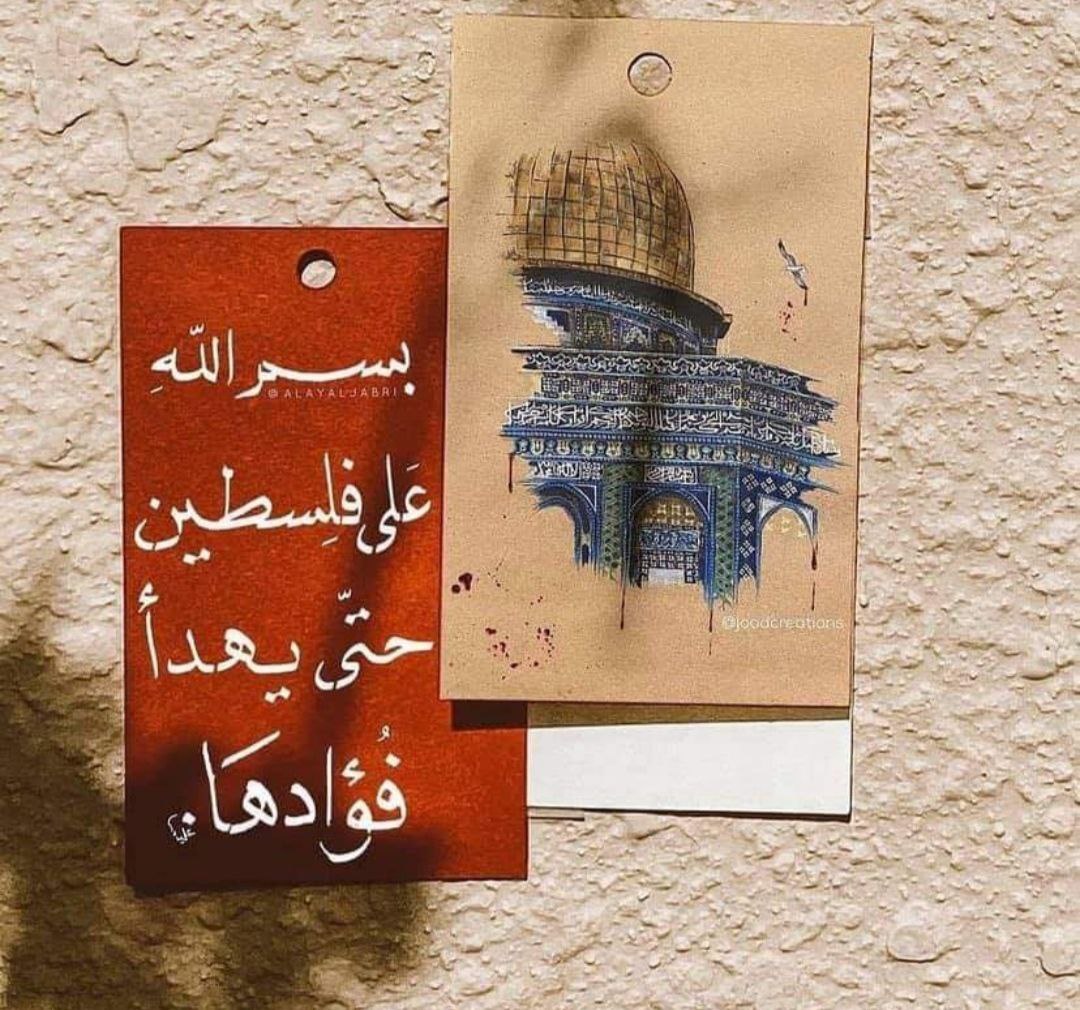 بسم اللّهِ
@ALAYALJABRI
عَلى فلِسطين
حتّى يهدأ
فُؤادهَا.
@joodcreations